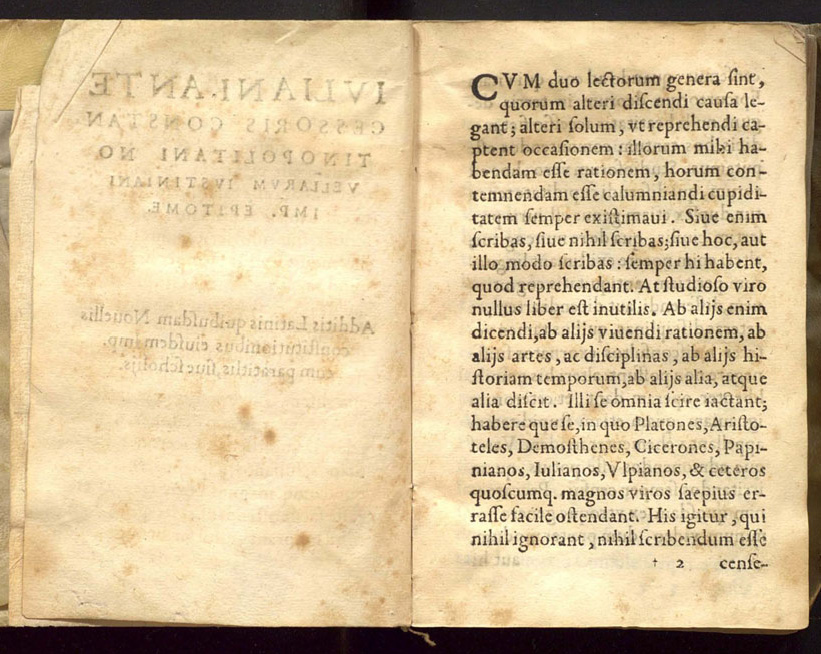 IVLIANI ANTE
CESSORIS CONSTAN
TINOPOLITANI NO
VELLARVM IVSTINIANI
IMP. EPITOME.
Additis Latinis quibusdam Nouellis
constitutionibus eiusdem imp.
cum paratitlis, siue scholijs.
CVM duo lectorum genera sint,
quorum alteri discendi causa le-
gant; alteri solum, vt reprehendi ca-
ptent occasionem: illorum mihi ha-
bendam esse rationem, horum con-
temnendam esse calumniandi cupidi-
tatem semper existimaui. Siue enim
scribas, siue nihil scribas; siue hoc, aut
illo modo scribas: semper hi habent,
quod reprehendant. At studioso viro
nullus liber est inutilis. Ab alijs enim
dicendi, ab alijs viuendi rationem, ab
alijs artes, ac disciplinas, ab alijs hi-
storiam temporum, ab alijs alia, atque
alia discit. Illi se omnia scire iactant;
habere que se, in quo Platones, Aristo-
teles, Demosthenes, Cicerones, Papi-
nianos, Iulianos, Vlpianos, & ceteros
quoscumq. magnos viros saepius er-
rasse facile ostendant. His igitur, qui
nihil ignorant, nihil scribendum esse
† 2 cense-